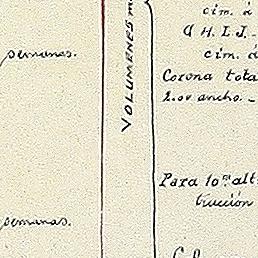 semanas.
semanas.
VOLUMENES
cim. á
G H I J.-
cim. á
Corona tota
2.00 ancho.-
Para 10ᵐ alt
trucción